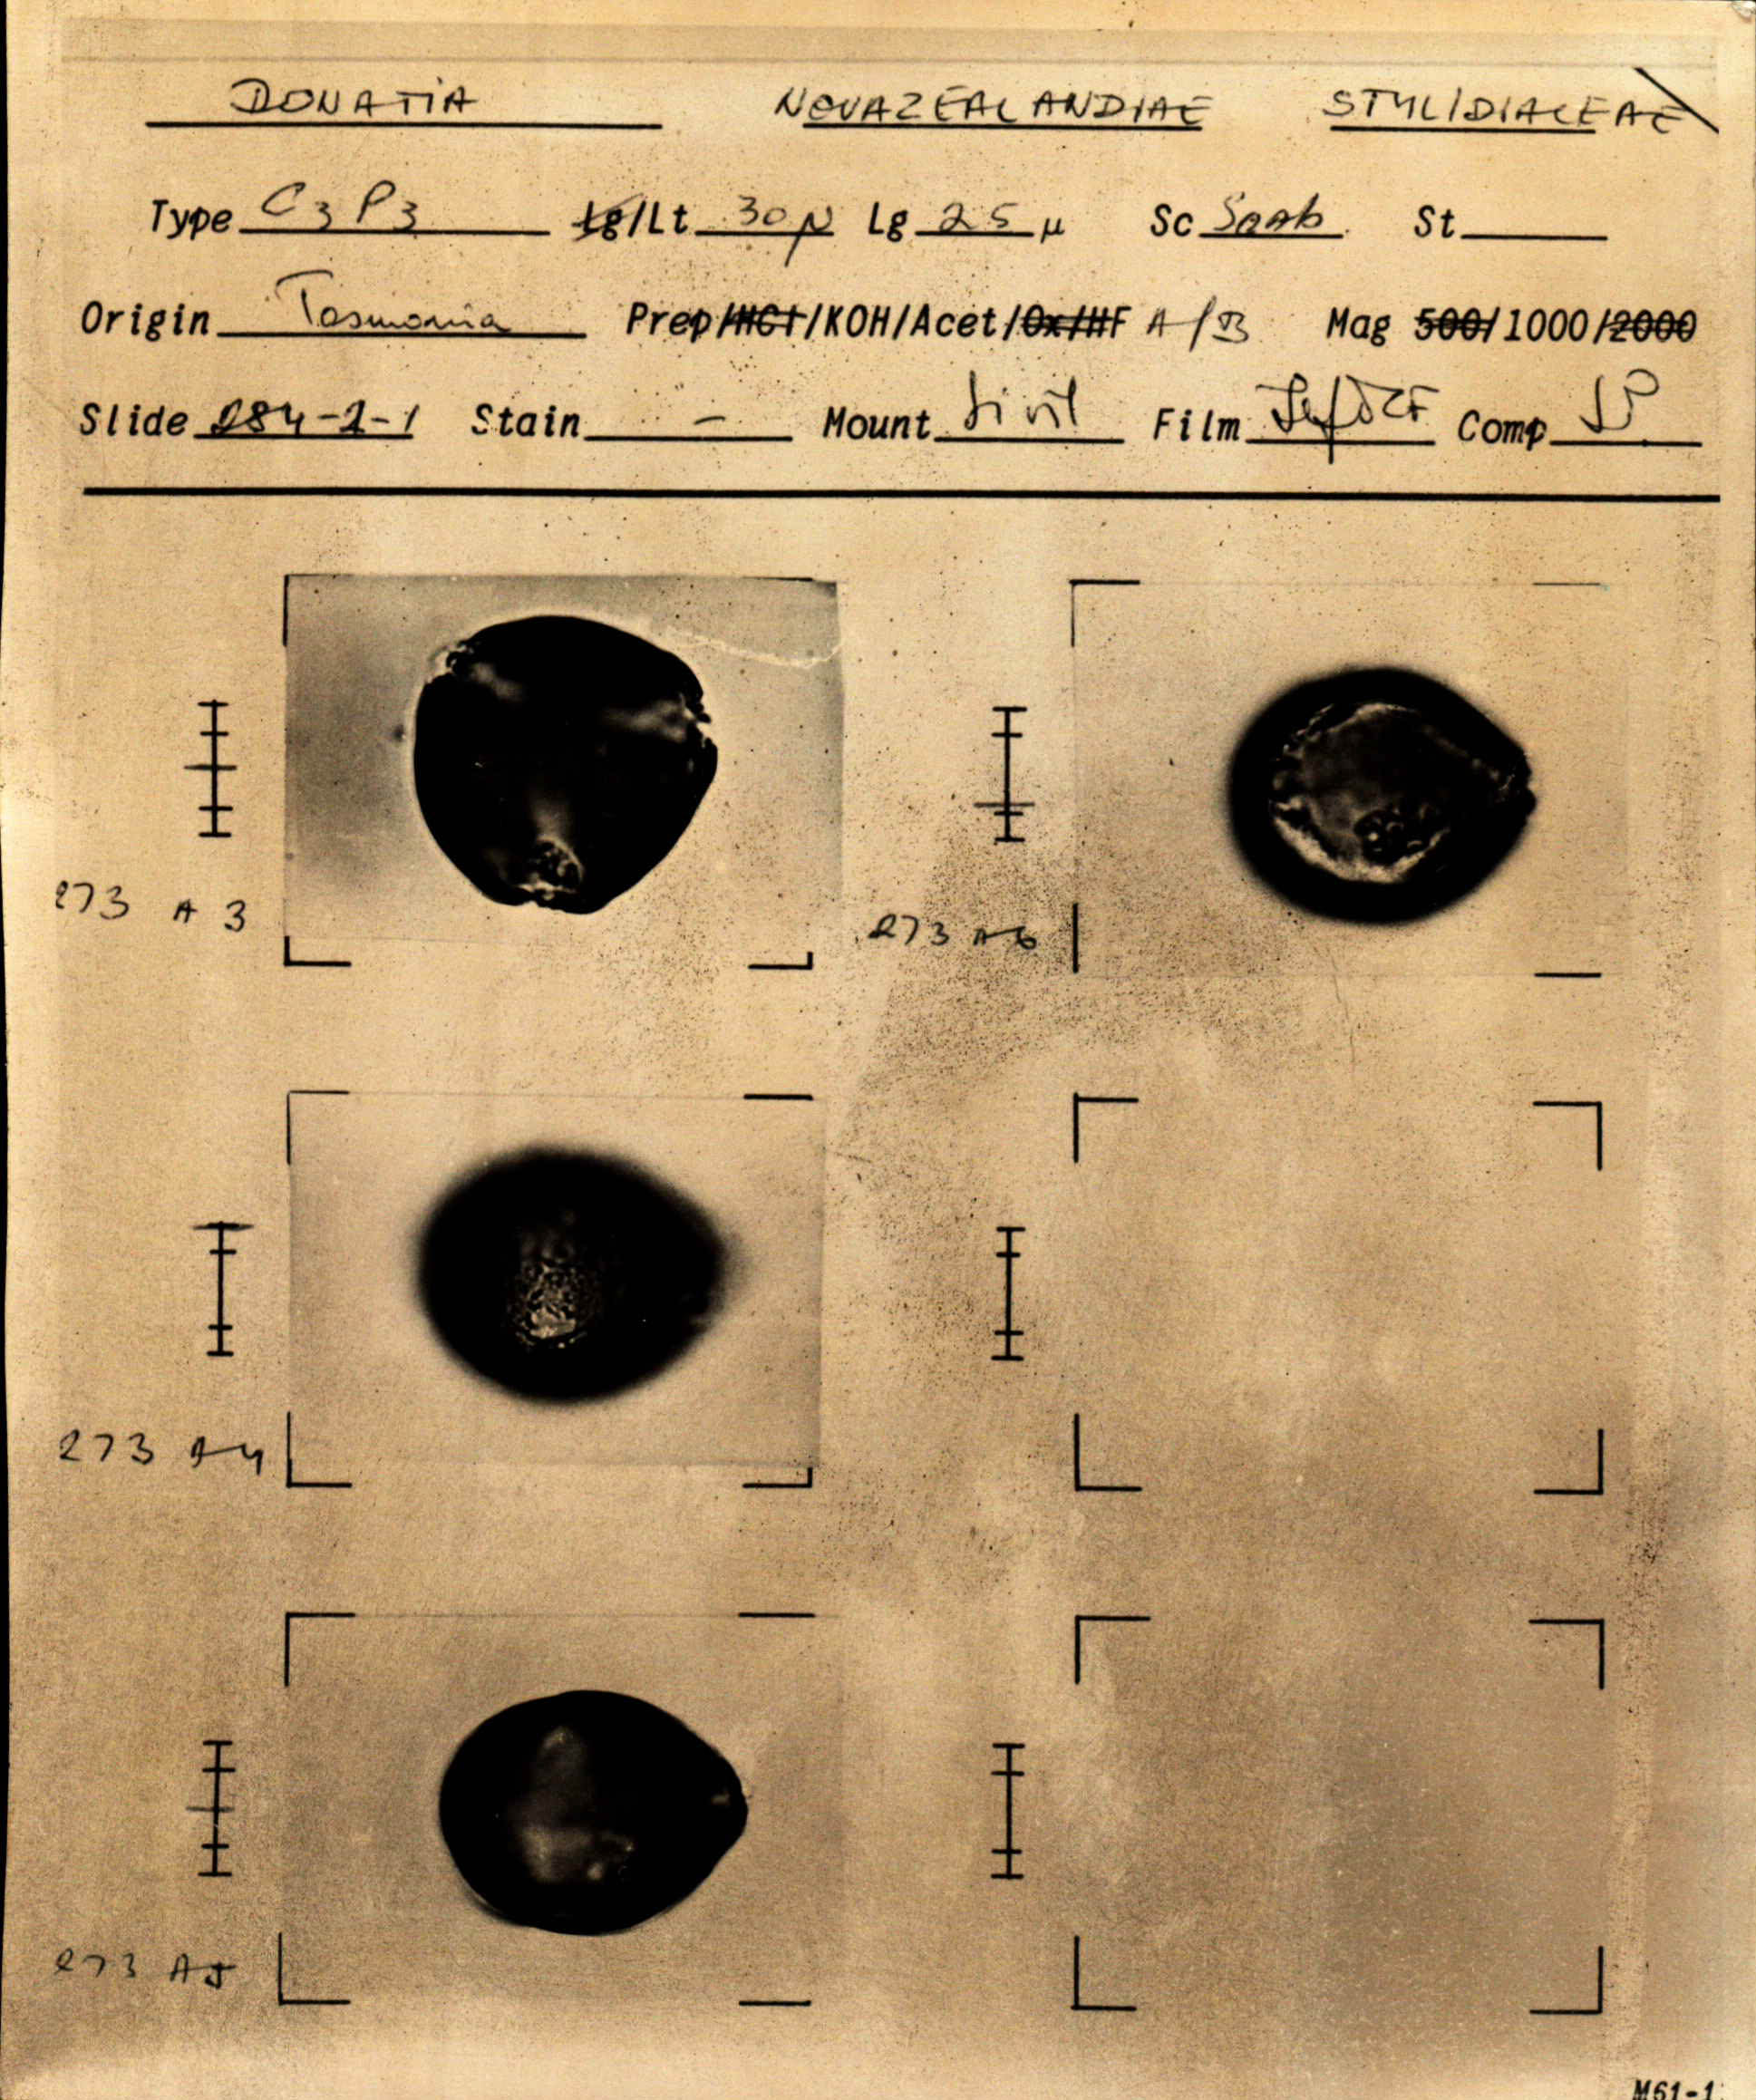 DONATIA NOVAZEALANDIAE STYLIDIACEAE
Type C3P3 Lg/Lt 30 µ Lg 25 µ Sc St
Origin Tasmania Prep/HCl/KOH/Acet/Ox/HF A/B Mag 500/1000/2000
Slide 284-2-1 Stain - Mount Film Comp
273 A 3
273 A6
273 A4
273 A5
M61-1